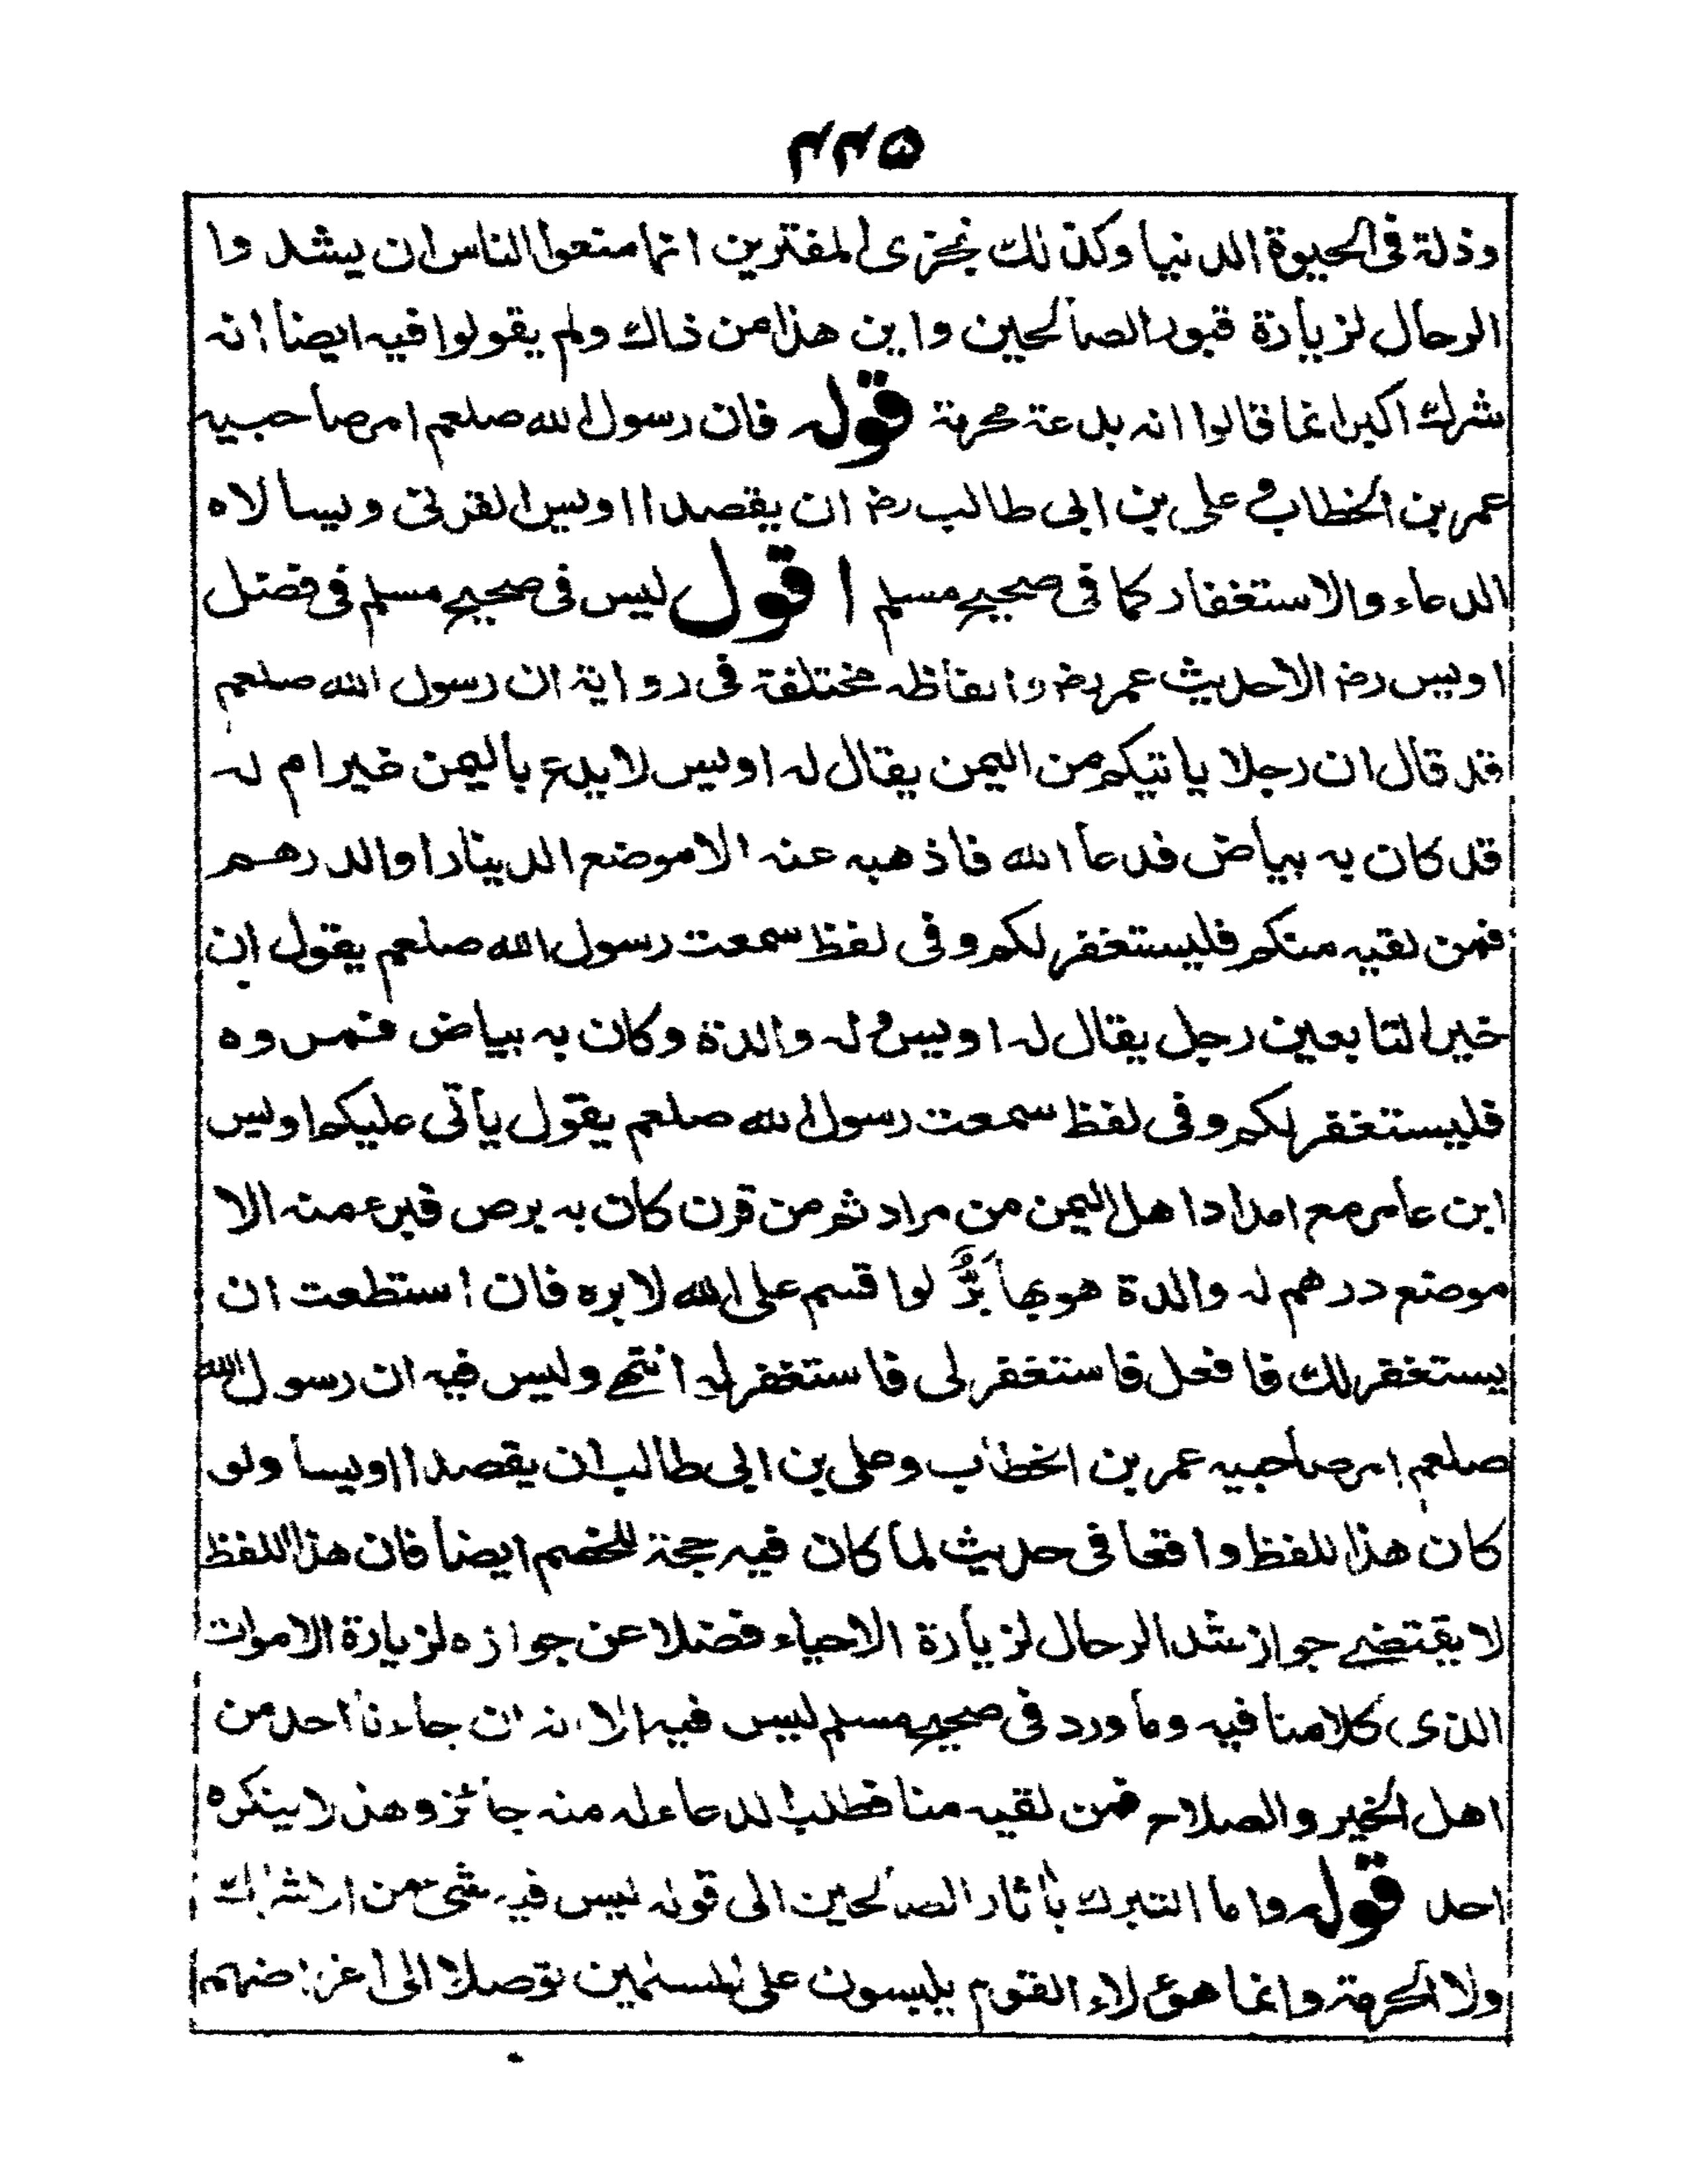 ۴۴۵
وذلة فى الحيوة الدنيا وكذلك نجزى المفترين انما منعوا الناس ان يشدوا
الرحال لزيارة قبور الصالحين واين هذا من ذاك ولم يقولوا فيه ايضا انه
شرك اكبر انما قالوا انه بدعة محرمة قوله فان رسول الله صلعم امر صاحبيه
عمر بن الخطاب وعلى بن ابى طالب رض ان يقصدا اويس القرنى ويسالاه
الدعاء والاستغفار كما فى صحيح مسلم اقول ليس فى صحيح مسلم فى فضل
اويس رض الاحديث عمر رض والفاظه مختلفة فى رواية ان رسول الله صلعم
قد قال ان رجلا ياتيكم من اليمن يقال له اويس لا يدع باليمن غير ام له
قد كان به بياض فدعا الله فاذهبه عنه الا موضع الدينار او الدرهم
فمن لقيه منكم فليستغفر لكم وفى لفظ سمعت رسول الله صلعم يقول ان
خير التابعين رجل يقال له اويس وله والدة وكان به بياض فمروه
فليستغفر لكم وفى لفظ سمعت رسول الله صلعم يقول يأتى عليكم اويس
ابن عامر مع امداد اهل اليمن من مراد ثم من قرن كان به برص فبرء منه الا
موضع درهم له والدة هو بها بَرٌّ لو اقسم على الله لابره فان استطعت ان
يستغفر لك فافعل فاستغفر لى فاستغفر له انتهى وليس فيه ان رسول الله
صلعم امر صاحبيه عمر بن الخطاب وعلى بن ابى طالب ان يقصدا اويسا ولو
كان هذا اللفظ واقعا فى حديث لما كان فيه حجة للخصم ايضا فان هذا اللفظ
لا يقتضى جواز شد الرحال لزيارة الاحياء فضلا عن جوازه لزيارة الاموات
الذى كلامنا فيه وما ورد فى صحيح مسلم ليس فيه الا انه ان جاءنا احد من
اهل الخير والصلاح فمن لقيه منا فطلب الدعاء له منه جائز وهذا لا ينكره
احد قوله واما التبرك بآثار الصالحين الى قوله ليس فيه شىء من الاشراك
ولا الحرمة وانما هؤلاء القوم يلبسون على المسلمين توصلا الى اغراضهم